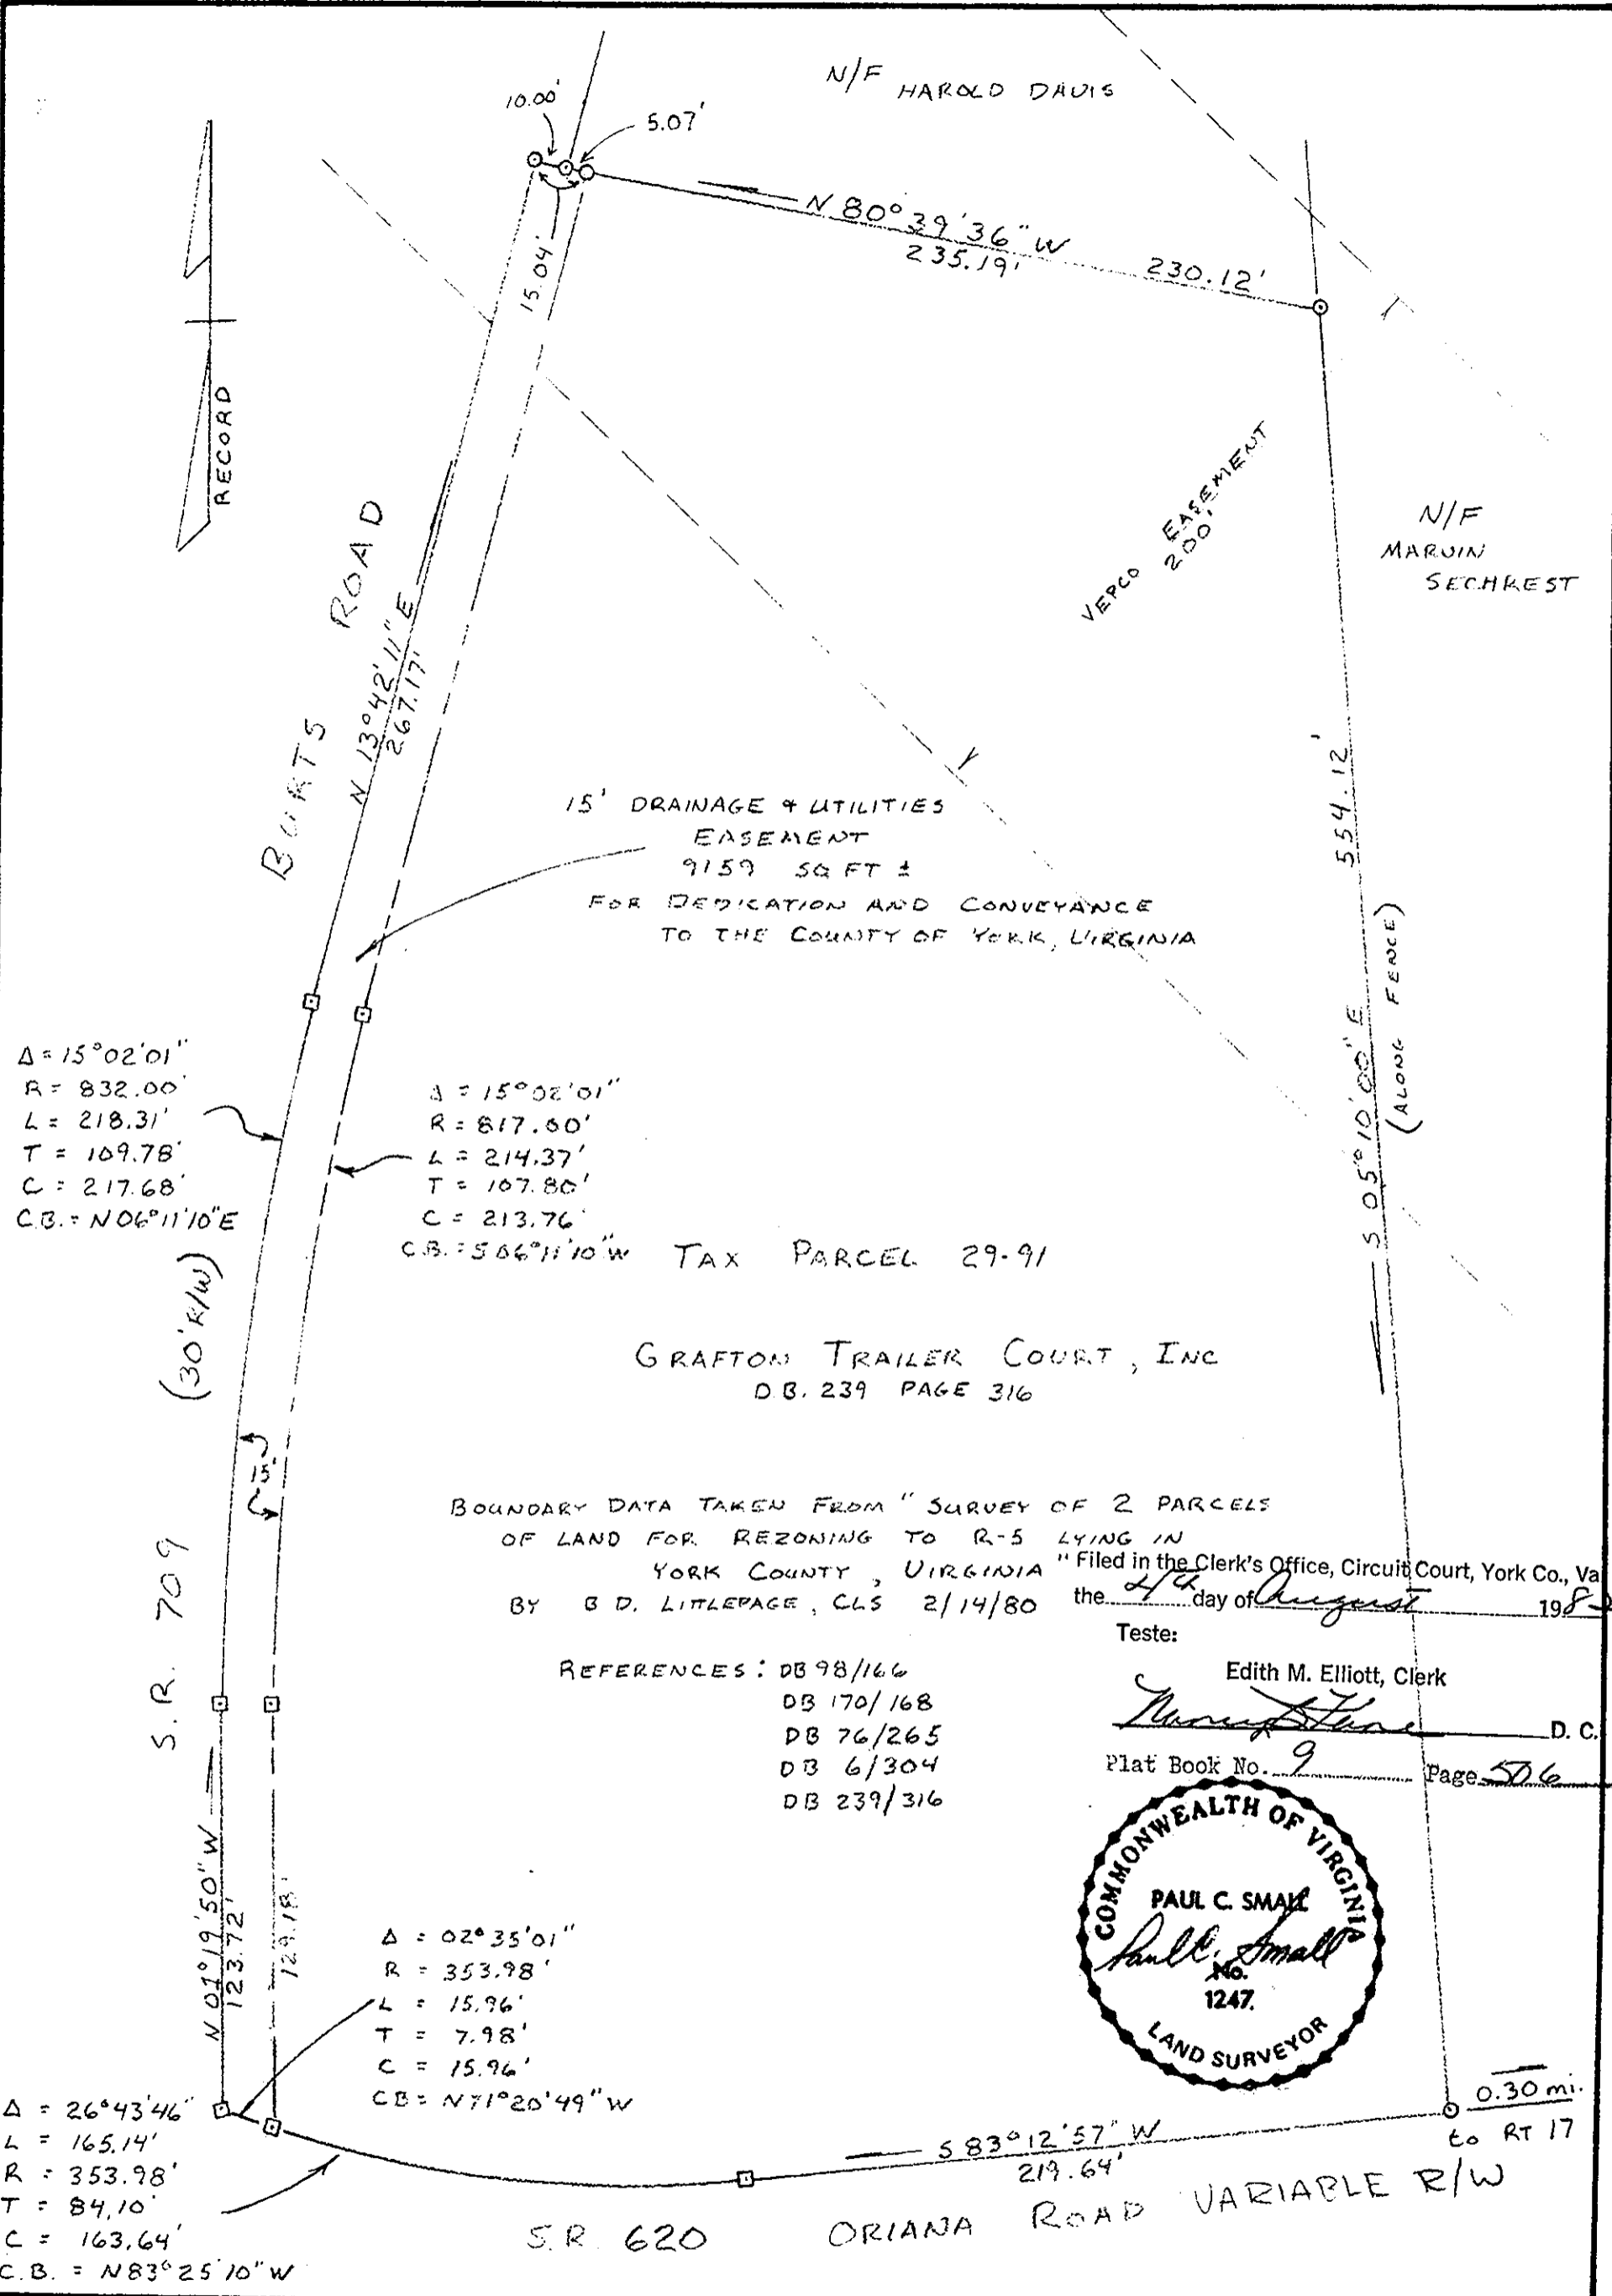 N/F HAROLD DAVIS
10.00'
5.07'
N 80°39'36" W
235.19'
230.12'
15.04'
RECORD
BURTS ROAD
N 13°42'11" E
267.17'
VEPCO EASEMENT
200'
N/F
MARVIN
SECHREST
15' DRAINAGE & UTILITIES
EASEMENT
9159 SQ FT ±
FOR DEDICATION AND CONVEYANCE
TO THE COUNTY OF YORK, VIRGINIA
554.12'
S 05°10'00" E
(ALONG FENCE)
Δ = 15°02'01"
R = 832.00'
L = 218.31'
T = 109.78'
C = 217.68'
C.B. = N06°11'10"E
Δ = 15°02'01"
R = 817.00'
L = 214.37'
T = 107.80'
C = 213.76'
C.B. = S06°11'10"W
TAX PARCEL 29-91
(30' R/W)
GRAFTON TRAILER COURT, INC
D.B. 239 PAGE 316
15'
S.R. 709
BOUNDARY DATA TAKEN FROM "SURVEY OF 2 PARCELS
OF LAND FOR REZONING TO R-5 LYING IN
YORK COUNTY, VIRGINIA"
BY B D. LITTLEPAGE, CLS 2/14/80
Filed in the Clerk's Office, Circuit Court, York Co., Va
the 4th day of August 198
Teste:
Edith M. Elliott, Clerk
D. C.
Plat Book No. 9 Page 506
REFERENCES: DB 98/166
DB 170/168
DB 76/265
DB 6/304
DB 239/316
COMMONWEALTH OF VIRGINIA
PAUL C. SMALL
Paul C. Small
No.
1247.
LAND SURVEYOR
N 01°19'50" W
123.72'
129.18'
Δ = 02°35'01"
R = 353.98'
L = 15.96'
T = 7.98'
C = 15.96'
CB = N71°20'49" W
Δ = 26°43'46"
L = 165.14'
R = 353.98'
T = 84.10'
C = 163.64'
C.B. = N83°25'10" W
S 83°12'57" W
219.64'
0.30 mi.
to RT 17
S.R. 620 ORIANA ROAD VARIABLE R/W